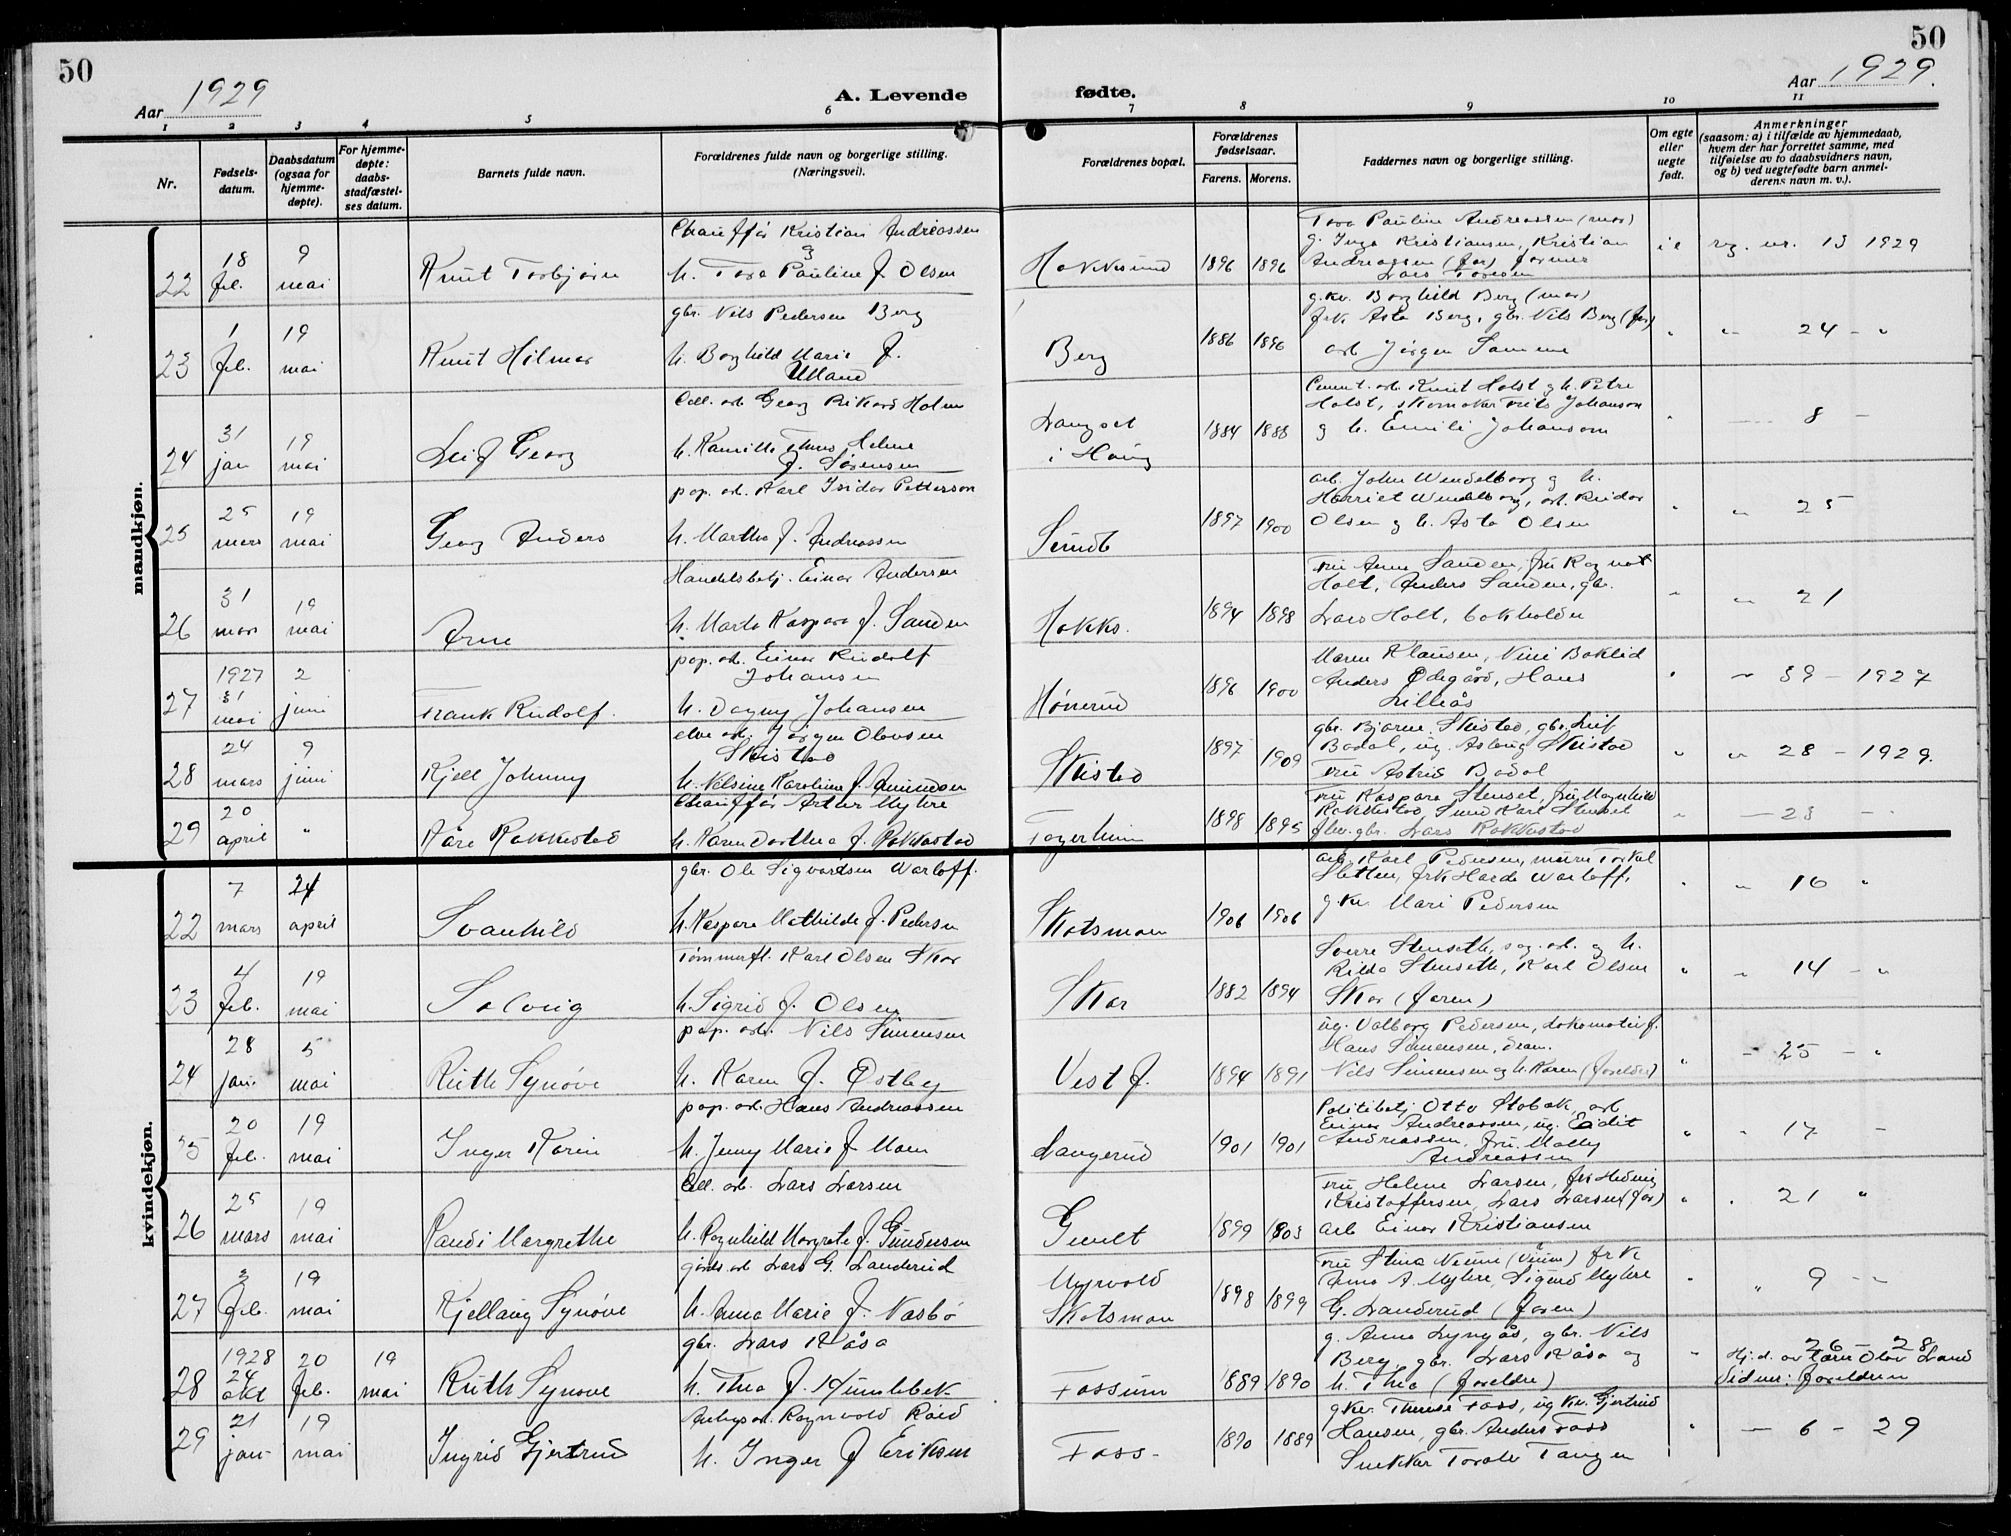 50
Aar 1929
A. Levende
fødte.
50
Aar 1929.
1 2 3 4 5 6 7 8 9 10 11
Nr.
Fødsels-
datum.
Daabsdatum
(ogsaa for
hjemme-
døpte).
For hjemme-
døpte:
daabs-
stadfæstel-
ses datum.
Barnets fulde navn.
Forældrenes fulde navn og borgerlige stilling.
(Næringsvei).
Forældrenes bopæl.
Forældrenes
fødselsaar.
Farens. Morens.
Faddernes navn og borgerlige stilling.
Om egte
eller
uegte
født.
Anmerkninger
(saasom: a) i tilfælde av hjemmedaab,
hvem der har forrettet samme, med
tilføielse av to daabsvidners navn,
og b) ved uegtefødte barn anmel-
derens navn m. v.).
mandkjøn.
22
18
feb.
9
mai
Knut Torbjørn
Chauffør Kristian Andreassen
og
h. Tora Pauline f. Olsen
Hokksund
1896 1896
Tora Pauline Andreassen (mor)
g. Inga Kristiansen, Kristian
Andreassen (far)
Lars Toresen
i e
reg. nr. 13 1929
23
1
feb.
19
mai
Knut Hilmar
gbr. Nils Pedersen Berg
h. Borghild Marie f.
Ulland
Berg
1886 1896
g.kv. Borghild Berg (mor)
frk Asta Berg, gbr. Nils Berg (far)
arb Jørgen
" " 24 - "
24
31
jan
19
mai
Leif Georg
Cell. arb Georg Rikard Holm
h. Kamilla Helene
f. Sørensen
Langset
i Haug
1884 1888
Cement. arb. Knut Holst g h. Petra
Holst, skomaker Frits Johanson
g h. Emilie Johanson
" - 8 -
25
25
mars
19
mai
Georg Anders
pap. arb. Karl Isidor Petterson
h. Martha f. Andreassen
Semdb
1897 1900
arb. John Wendelborg g h.
Harriet Wendelborg, arb. Reidar
Olsen g h. Asta Olsen
" " 25
26
31
mars
19
mai
Arne
Handelsbetj. Einar Andersen
h. Marta Kaspara f. Sanden
Hokks.
1894 1898
Fru Anna Sanden, fru Ragna
Holt, Anders Sanden, gbr.
Lars Holt, bokholder
" " 21
27
1927
31
mai
2
juni
Frank Rudolf.
pap. arb. Einar Rudolf
Johansen
h. Dagny Johansen
Hønerud
1896 1900
Maren Klausen, Nini Baklid
Anders Ødegård, Hans
Lilleås
" " 39 - 1927
28
24
mars
9
juni
Kjell Johnny
elve arb. Jørgen Olavsen
Skistad
h. Nelsine Karoline f. Amundsen
Skistad
1897 1909
gbr. Bjarne Skistad, gbr. Leif
Badal, ug. Aslaug Skistad
Fru Astrid Badal
" " 28 - 1929.
29
20
april
"
Kåre Rakkestad
Chauffør Artur Myhre
h. Karen Dorthea f. Rakkestad
Fagerheim
1898 1895
Fru Kaspara Stenset, fru Magnhild
Rakkestad, Karl Stenset
gbr. Lars Rakkestad
" - 23 -
kvindekjøn.
22
7
mars
24
april
Svanhild
gbr. Ole Sigvartsen Warloff.
h. Kaspara Mathilde f. Pedersen
Skotsmoen
1906 1906
arb. Karl Pedersen, murer Torkel
Sletten, frk Warloff,
gkv. Mari Pedersen
" " 16 "
23
4
feb.
19
mai
Solveig
Tømmerfl. Karl Olsen Skar
h. Sigrid f. Olsen
Skar
1882 1894
Sverre Stenseth, sag. arb. og h.
Hilda Stenseth, Karl Olsen
Skar (faren)
" " 14 - "
24
28
jan.
5
mai
Ruth Synøve
pap. arb. Nils Simensen
h. Karen f. Østby
Vestf.
1894 1891
ug. Valborg Pedersen, lokomotivf.
Hans Simensen, Dram.
Nils Simensen og h. Karen (foreldre)
" - 25 - "
25
20
feb.
19
mai
Inger Karin
pap. arb. Hans Andreassen
h. Jenny Marie f. Moen
Langerud
1901 1901
Politibetj Otto Stabæk, arb
Einar Andreassen, ug. Eidit
Andreassen, fru Molly
Andreassen
" " 17 -
26
25
mars
19
mai
Randi Margrethe
Cell. arb. Lars Larsen
h. Ragnhild Margrete f. Gundersen
Gunlt
1899 1903
Fru Helene Larsen, frk Hedvig
Kristoffersen, Lars Larsen (far)
arb Einar Kristiansen
" " 21 "
27
3
feb.
19
mai
Kjellaug Synøve
gårds. arb Lars G. Landerud
h. Anna Marie f. Nasbø
Myrvold
Skotsmoen
1898 1899
Fru Stina frk
Anna A. Myhre, Sigurd Myhre
G. Landerud (faren)
" " 9 -
28
1928
24
okt
20
feb.
19
mai
Ruth Synøve
gbr. Lars Kåsa
h. Thea f. Humlebek
Fossum
1889 1890
g. Anna Lyngås, gbr. Nils
Berg, gbr. Lars Kåsa og
h. Thea (foreldre)
"
26 - 28
Hj.d. av Olav Land
Vidner: foreldren
29
21
jan.
19
mai
Ingrid Gjertrud
Anlegs arb. Ragnvald Röed
h. Inger f Eriksen
Foss-
1890 1889
gkv. Therese Foss, ug kv. Gjertrud
Hansen, gbr. Anders Foss
Snekker Torolv Tangen
" - 6 - 29